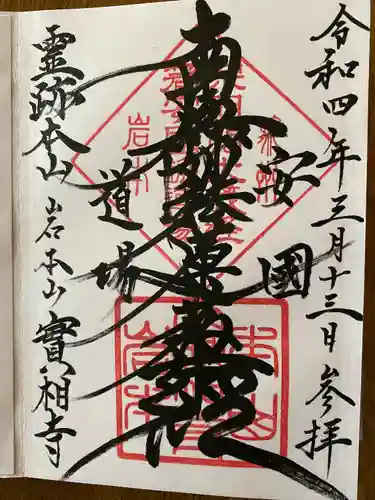 令和四年三月十三日参拝
安國
南無妙法蓮華経
道場
霊跡本山 岩本山 實相寺